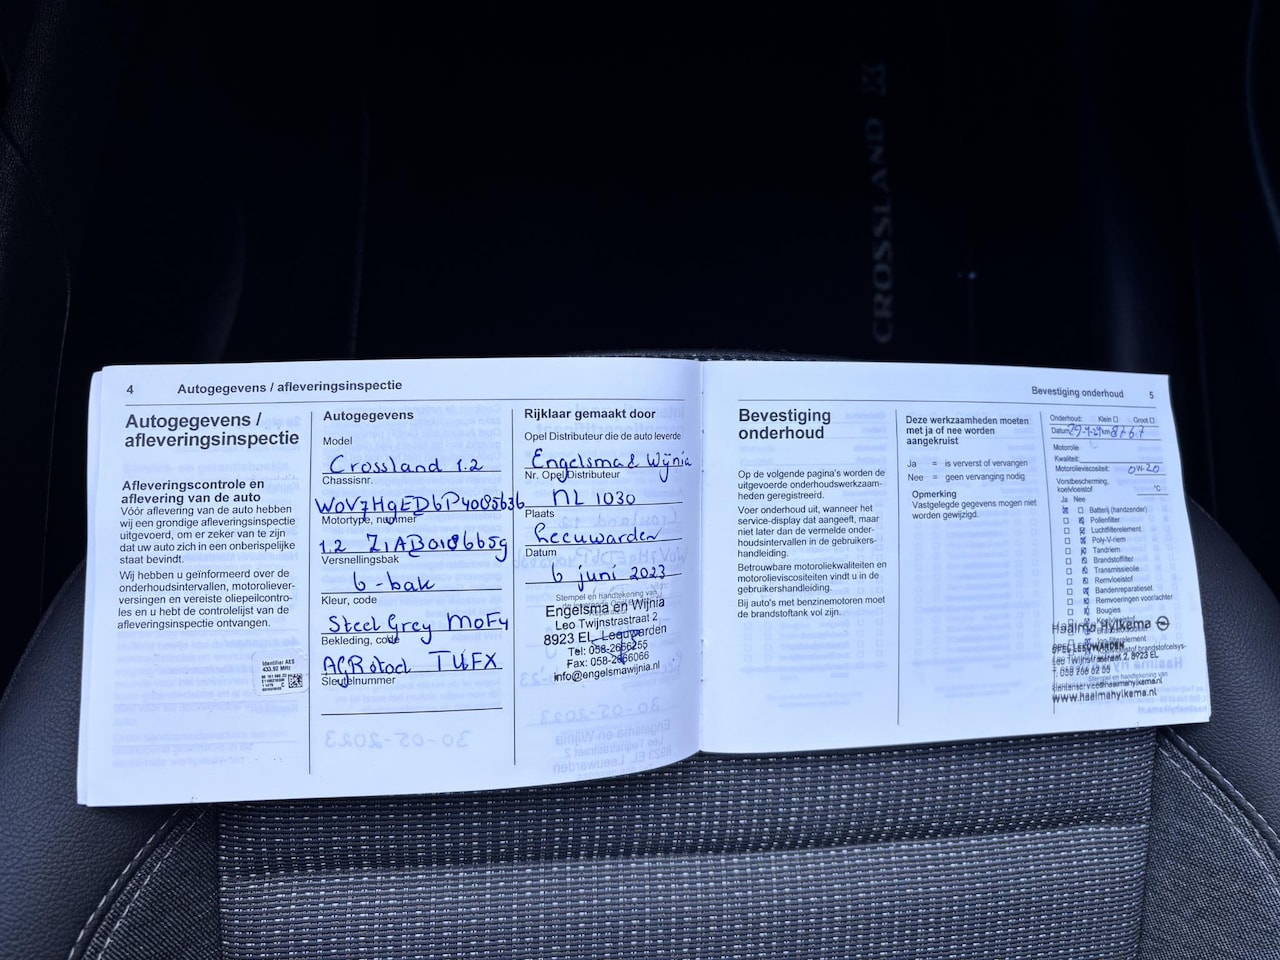 CROSSLAND X
4 Autogegevens / afleveringsinspectie
Autogegevens /
afleveringsinspectie
Afleveringscontrole en
aflevering van de auto
Vóór aflevering van de auto hebben
wij een grondige afleveringsinspectie
uitgevoerd, om er zeker van te zijn
dat uw auto zich in een onberispelijke
staat bevindt.
Wij hebben u geïnformeerd over de
onderhoudsintervallen, motoroliever-
versingen en vereiste oliepeilcontro-
les en u hebt de controlelijst van de
afleveringsinspectie ontvangen.
Identifier AES
433.92 MHz
Autogegevens
Model
Crossland 1.2
Chassisnr.
Motortype, nummer
1.2
Versnellingsbak
6-bak
Kleur, code
Steel Grey MoF4
Bekleding, code
TUFX
Sleutelnummer
Rijklaar gemaakt door
Opel Distributeur die de auto leverde
Engelsma & Wijnia
Nr. Opel Distributeur
NL 1030
Plaats
Leeuwarden
Datum
6 juni 2023
Stempel en handtekening van
Engelsma en Wijnia
Leo Twijnstraat 2
8923 EL Leeuwarden
Tel: 058-2666255
Fax: 058-2666066
info@engelsmawijnia.nl
Bevestiging onderhoud 5
Bevestiging
onderhoud
Op de volgende pagina's worden de
uitgevoerde onderhoudswerkzaam-
heden geregistreerd.
Voer onderhoud uit, wanneer het
service-display dat aangeeft, maar
niet later dan de vermelde onder-
houdsintervallen in de gebruikers-
handleiding.
Betrouwbare motoroliekwaliteiten en
motorolieviscositeiten vindt u in de
gebruikershandleiding.
Bij auto's met benzinemotoren moet
de brandstoftank vol zijn.
Deze werkzaamheden moeten
met ja of nee worden
aangekruist
Ja = is ververst of vervangen
Nee = geen vervanging nodig
Opmerking
Vastgelegde gegevens mogen niet
worden gewijzigd.
Onderhoud: Klein Groot
Datum 29-4-24 km 8767
Motorolie
Kwaliteit:
Motorolieviscositeit: 0W-20
Vorstbescherming,
koelvloeistof °C
Ja Nee
Batterij (handzender)
Pollenfilter
Luchtfilterelement
Poly-V-riem
Tandriem
Brandstoffilter
Transmissieolie
Remvloeistof
Bandenreparatieset
Remvoeringen voor/achter
Bougies
Haaima Hylkema
OPEL LEEUWARDEN
Leo Twijnstraat 2, 8923 EL
Stempel en handtekening van
klantenservice@haaimahylkema.nl
www.haaimahylkema.nl